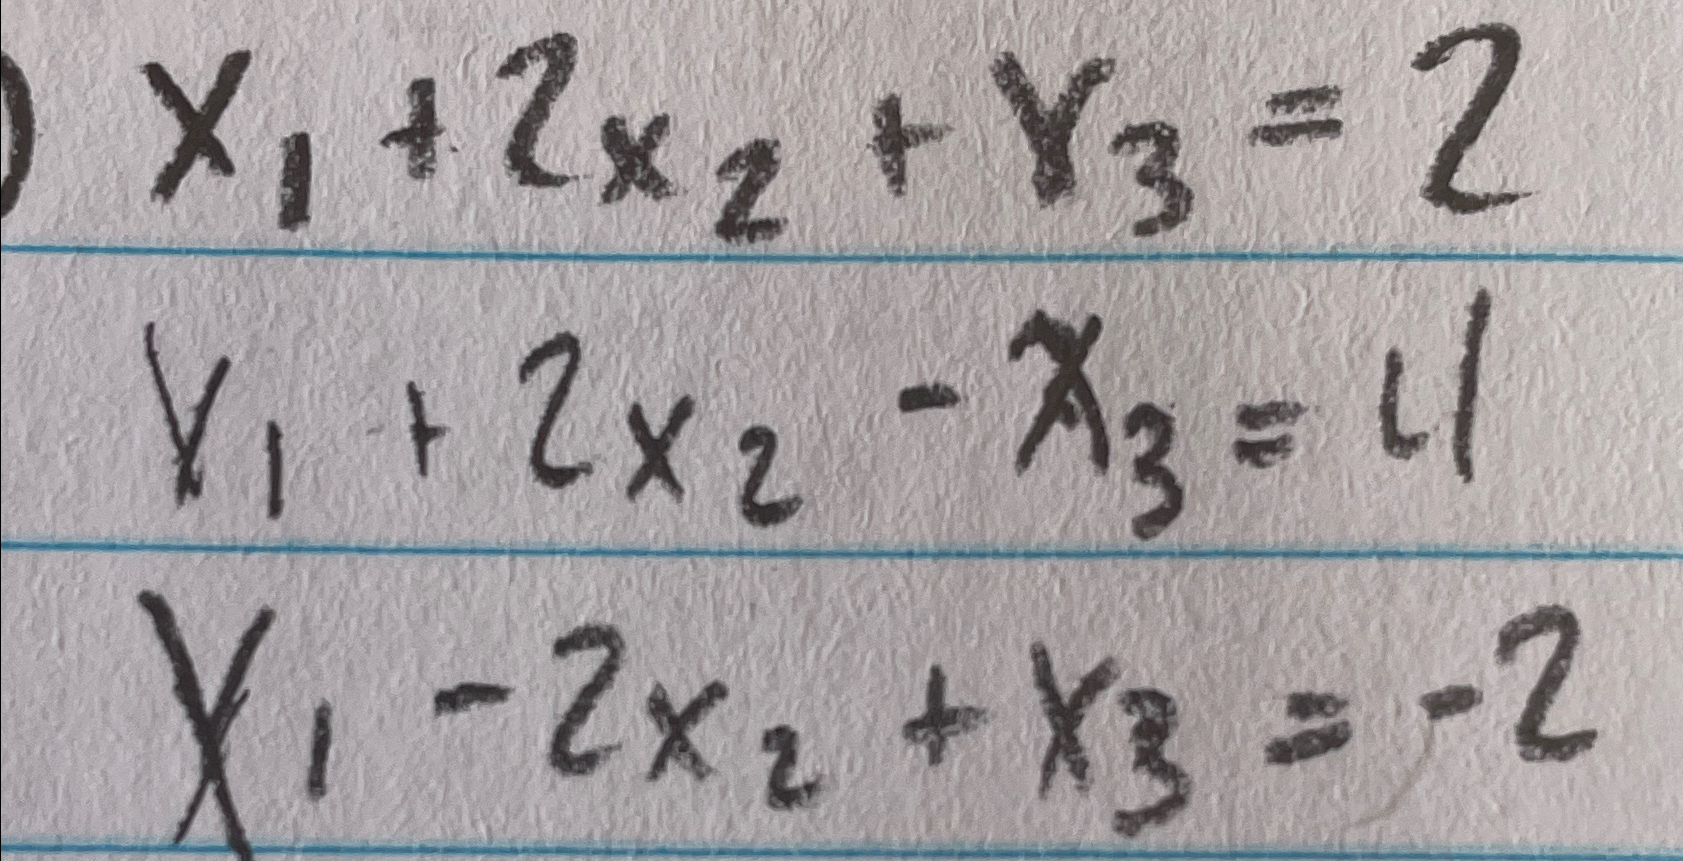 ) x₁ + 2x₂ + x₃ = 2
x₁ + 2x₂ - x₃ = 4
x₁ - 2x₂ + x₃ = -2